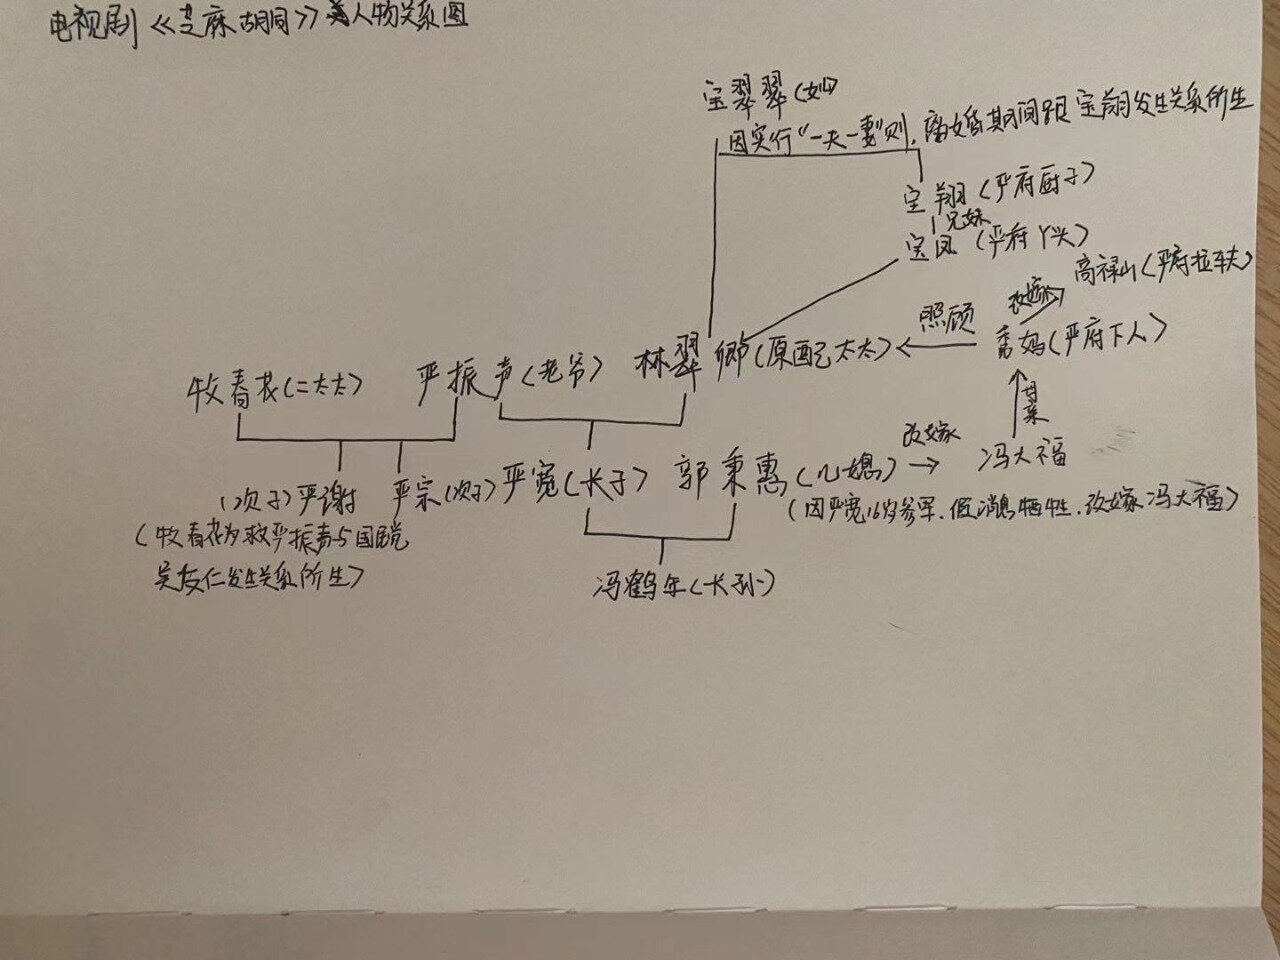 电视剧《芝麻胡同》人物关系图
宝翠翠(女)
因实行"一夫一妻"则,离婚期间跟宝翔发生关系所生
宝翔(严府厨子)
兄妹
宝凤(严府丫头)
高禄山(严府拉车夫)
改嫁
照顾
妈(严府下人)
林翠卿(原配太太)
严振声(老爷)
牧春花(二太太)
母亲
改嫁
冯大福
郭秉惠(儿媳)
严宽(长子)
严宗(次子)
(次子)严谢
(因严宽16岁参军,假消息牺牲,改嫁冯大福)
(牧春花为救严振声与国民党
吴友仁发生关系所生)
冯鹤年(长孙)